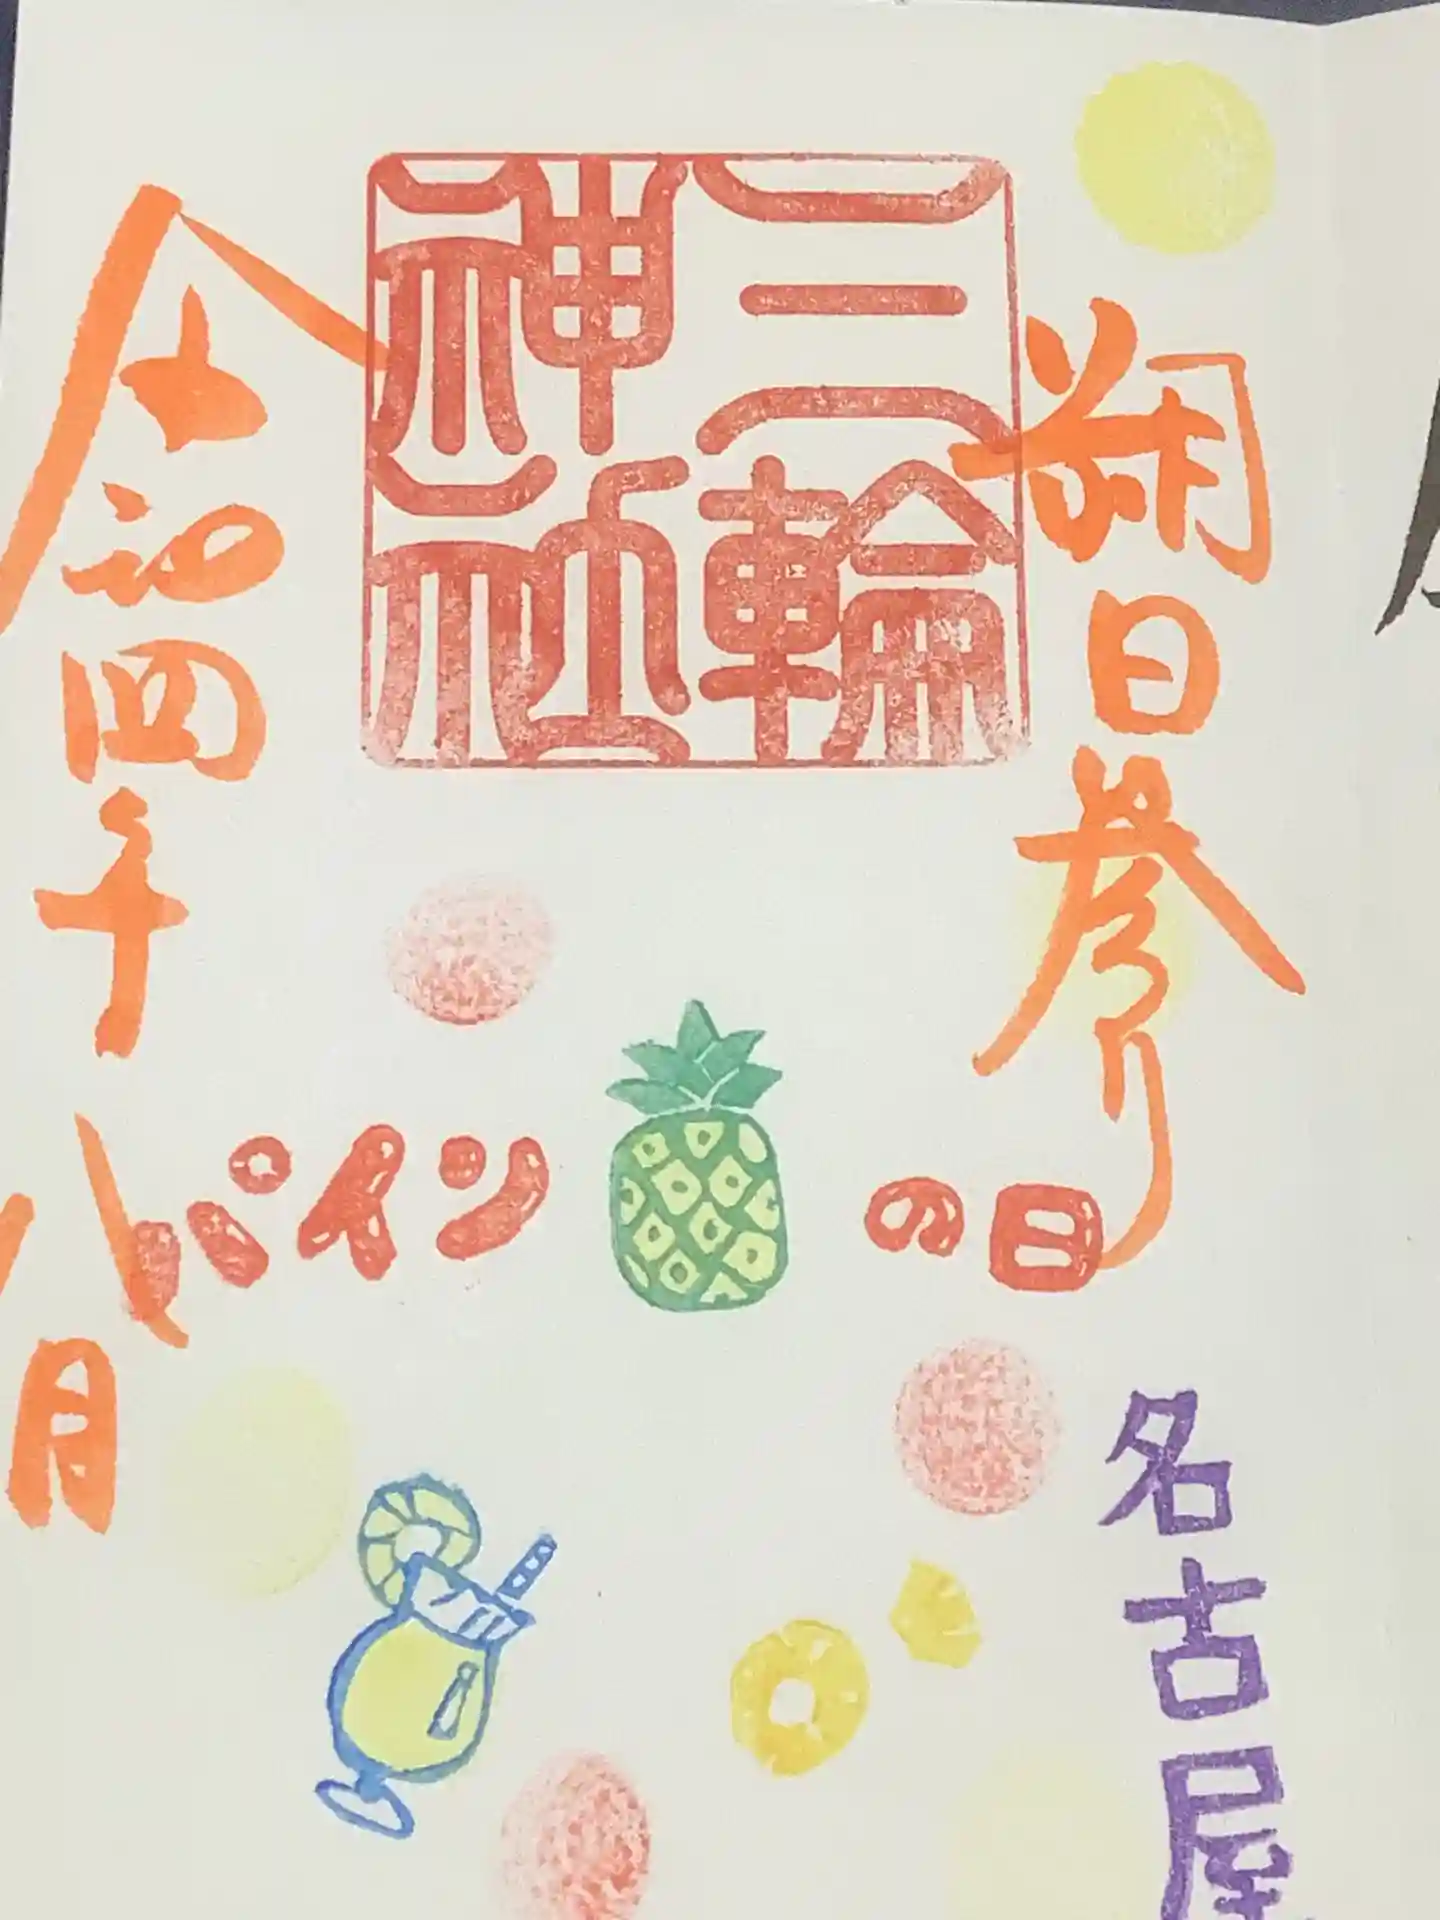 朔日参り
三輪
神社
パインの日
名古屋
令和四年八月